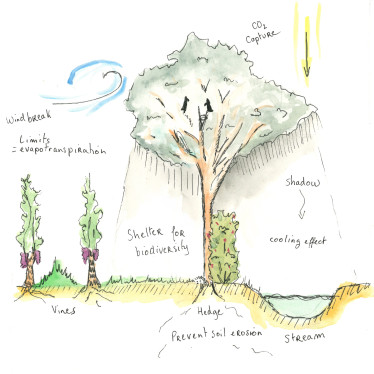 CO2
Capture
Windbreak
Limits
= evapotranspiration
Shadow
Shelter for
biodiversity
cooling effect
Vines
Hedge
Prevent soil erosion
Stream